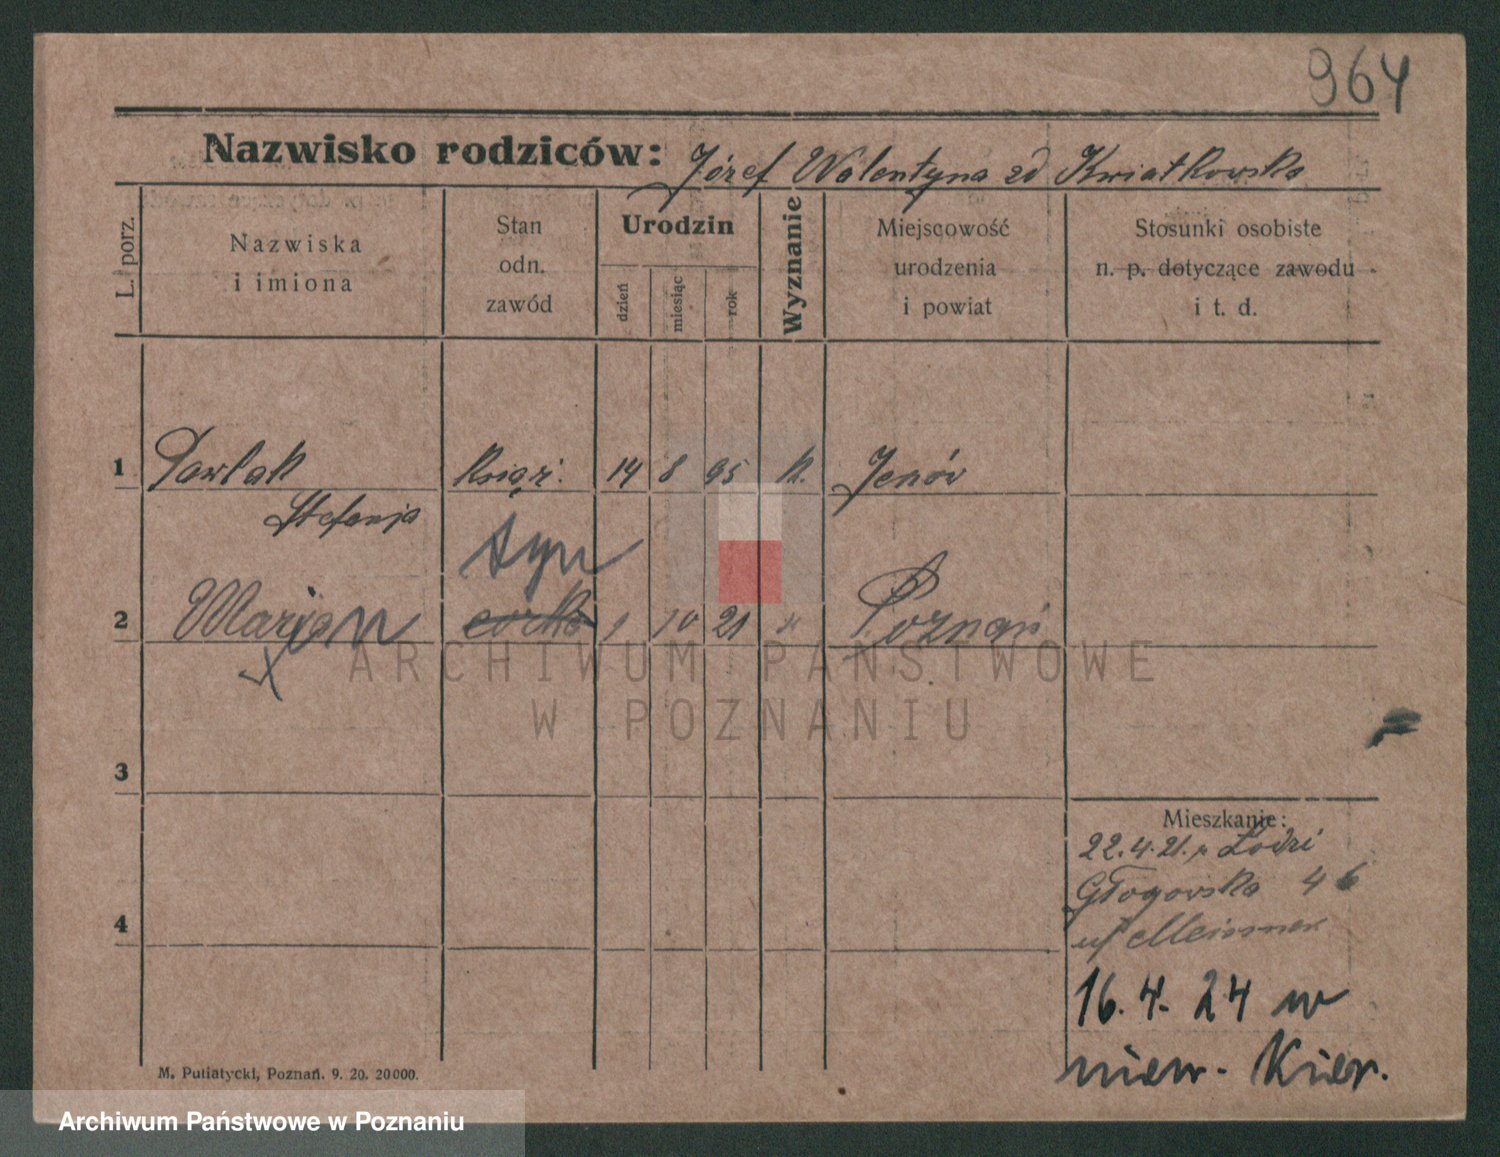 964
Nazwisko rodziców: Józef Walentyna zd Kwiatkowska
L. porz.
Nazwiska
i imiona
Stan
odn.
zawód
Urodzin
dzień
miesiąc
rok
Wyznanie
Miejscowość
urodzenia
i powiat
Stosunki osobiste
n. p. dotyczące zawodu
i t. d.
1 Pawlak 14 8 95 k.
Stefanja
syn
2 Marjan córka 1 10 21 Poznań
ARCHIWUM PAŃSTWOWE
W POZNANIU
3
Mieszkanie:
22.4.21. Łodzi
Głogowska 46
4
uf Meissner
16.4.24 w
niew. Kier.
M. Putiatycki, Poznań. 9. 20. 20000.
Archiwum Państwowe w Poznaniu